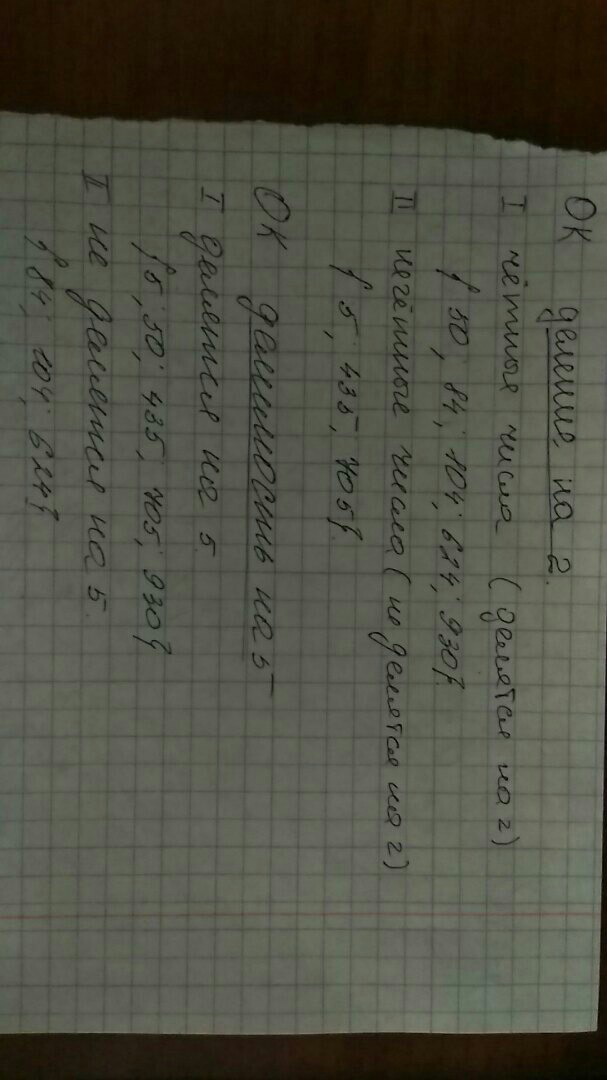 ОК деление на 2.
I чётные числа (делятся на 2)
{ 50; 84; 104; 624; 930}.
II нечётные число (не делятся на 2)
{ 5; 435; 705}.
ОК делимость на 5
I делится на 5.
{5; 50; 435; 705; 930}
II не делится на 5.
{84; 104; 624}